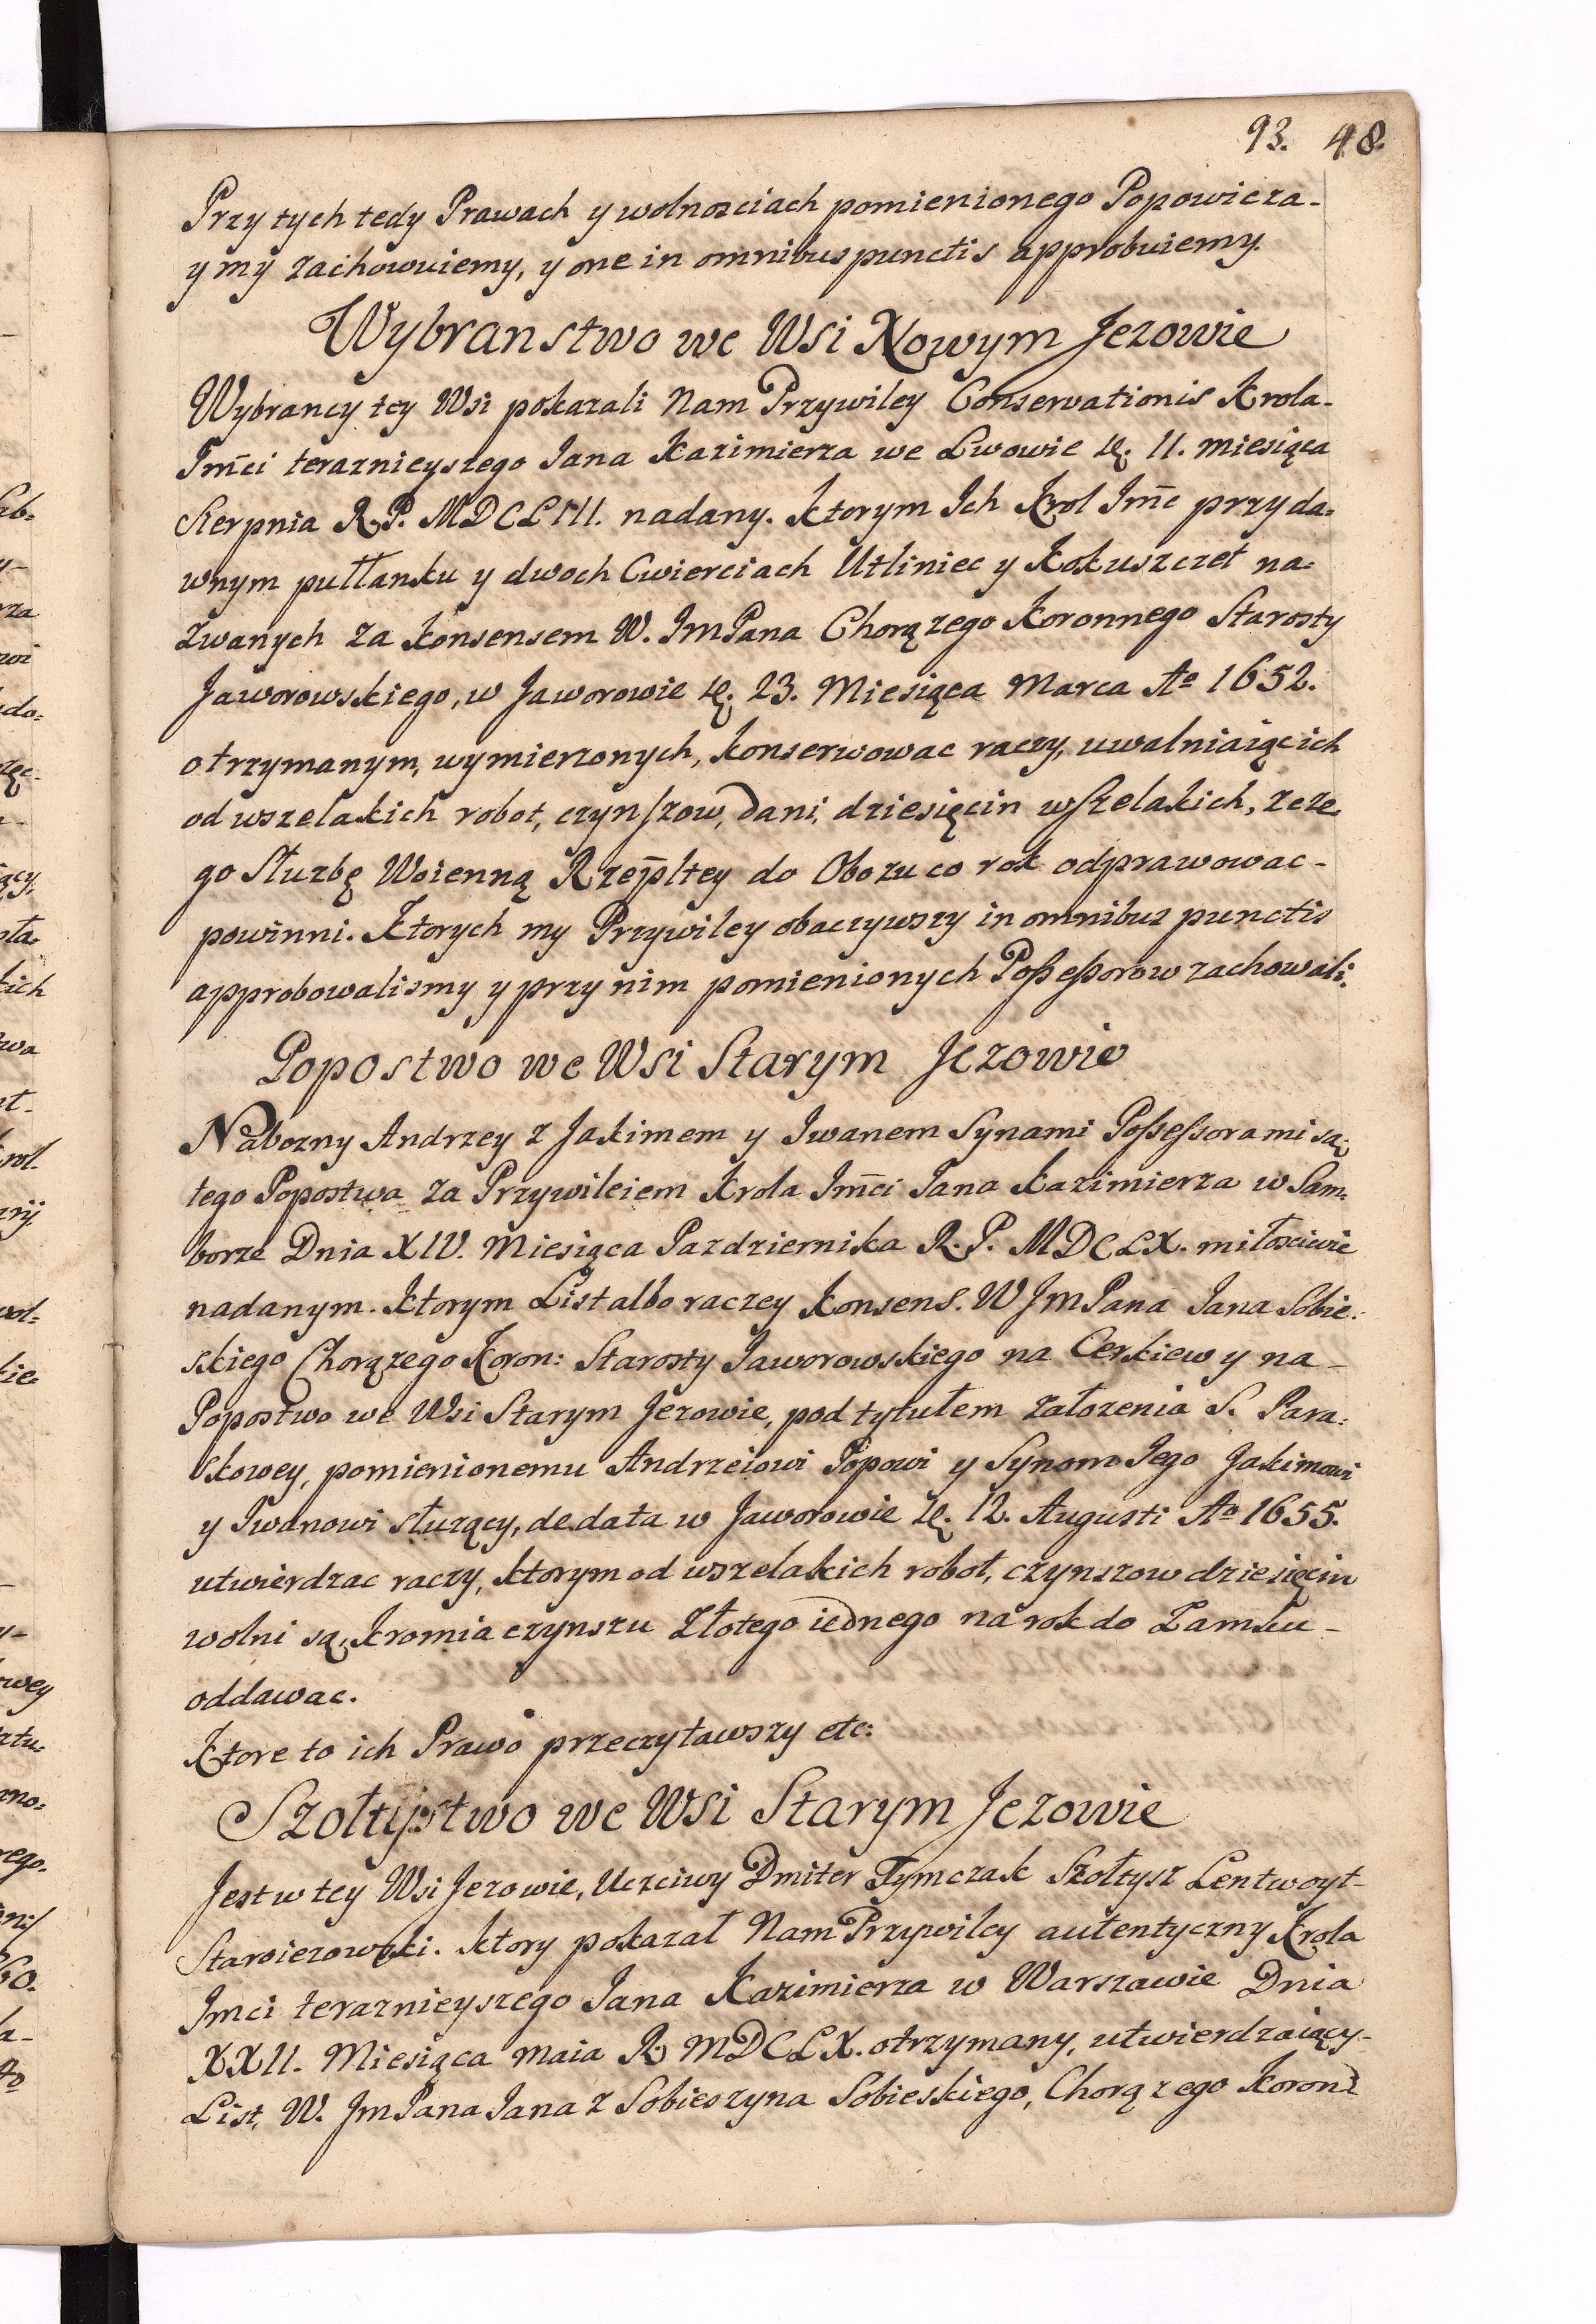 93. 48.
Przy tych tedy Prawach y wolnosciach pomienionego Popowicza-
y my zachowuiemy, y one in omnibus punctis approbuiemy.
Wybranstwo we Wsi Nowym Jezowie
Wybrancy tey Wsi pokazali Nam Przywiley Conservationis Krola-
Jm̄ci teraznieyszego Jana Kazimierza we Lwowie 11. miesiąca
Sierpnia R. P. MDCLIII. nadany. Ktorym Ich Krol Jm̄c przy da=
wnym pułłanku y dwoch Cwierciach Utliniec y Kokuszczet na=
zwanych za konsensem W. JmPana Chorązego Koronnego Starosty
Jaworowskiego, w Jaworowie 23. Miesiąca Marca Aº 1652.
otrzymanym, wymierzonych, konserwowac raczy, uwalniaiąc ich
od wszelakich robot, czynszow, dani, dziesięcin wszelakich, z cze=
go Słuzbę Woienną Rzejpltey do Obozu co rok odprawowac-
powinni. Ktorych my Przywiley obaczywszy in omnibus punctis
approbowalismy y przy nim pomienionych Poſseſsorow zachowali.
Popostwo we Wsi Starym Jezowie
Nabozny Andrzey z Jakimem y Iwanem Synami Poſseſsorami są;
tego Popostwa za Przywileiem Krola Jm̄ci Jana Kazimierza w Sam=
borze Dnia XIV. Miesiąca Pazdziernika R. P. MDCLX. miłosciwie
nadanym. Ktorym List albo raczey Konsens. W JmPana Jana Sobie=
skiego Chorązego Koron: Starosty Jaworowskiego na Cerkiew y na-
Popostwo we Wsi Starym Jezowie, pod tytułem załozenia S. Para=
skowey, pomienionemu Andrzeiowi Popowi y Synom Jego Jakimowi
y Iwanowi słuzący, de data w Jaworowie 12. Augusti Aº 1655.
utwierdzac raczy, ktorym od wszelakich robot, czynszow dziesięcin
wolni są, kromia czynszu Złotego iednego na rok do Zamku-
oddawac.
Ktore to ich Prawo przeczytawszy etc:
Szołtystwo we Wsi Starym Jezowie
Jest w tey Wsi Jezowie, Uczciwy Dmiter Tymczak Szołtysz Lentwoyt-
Staroiezowski. ktory pokazał Nam Przywiley autentyczny Krola
Jmci teraznieyszego Jana Kazimierza w Warszawie Dnia
XXII. Miesiąca Maia R. MDCLX. otrzymany, utwierdzaiący-
List, W. JmPana Jana z Sobieszyna Sobieskiego, Chorązego Koron: